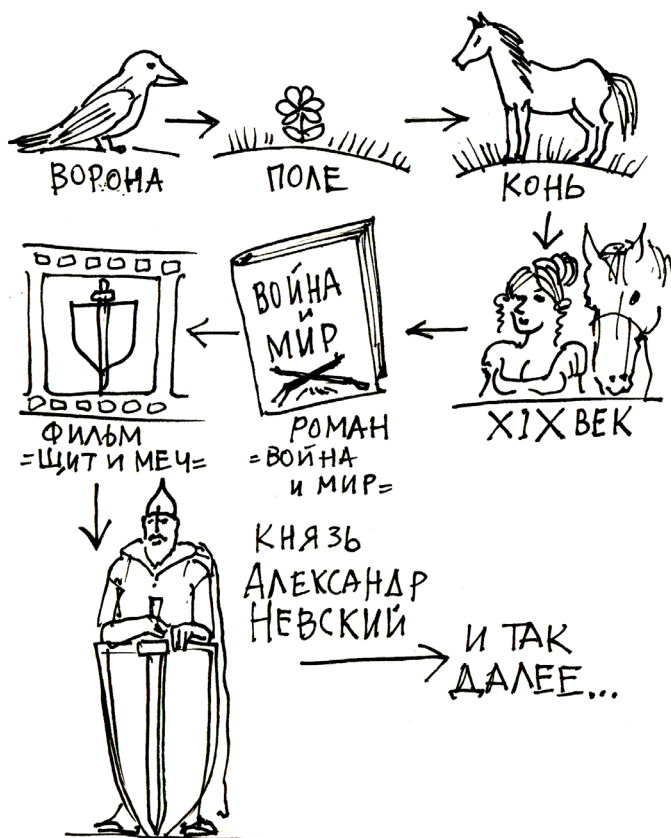 ВОРОНА
ПОЛЕ
КОНЬ
XIX ВЕК
ВОЙНА
И
МИР
РОМАН
=ВОЙНА
И МИР=
ФИЛЬМ
=ЩИТ И МЕЧ=
КНЯЗЬ
АЛЕКСАНДР
НЕВСКИЙ
И ТАК
ДАЛЕЕ...